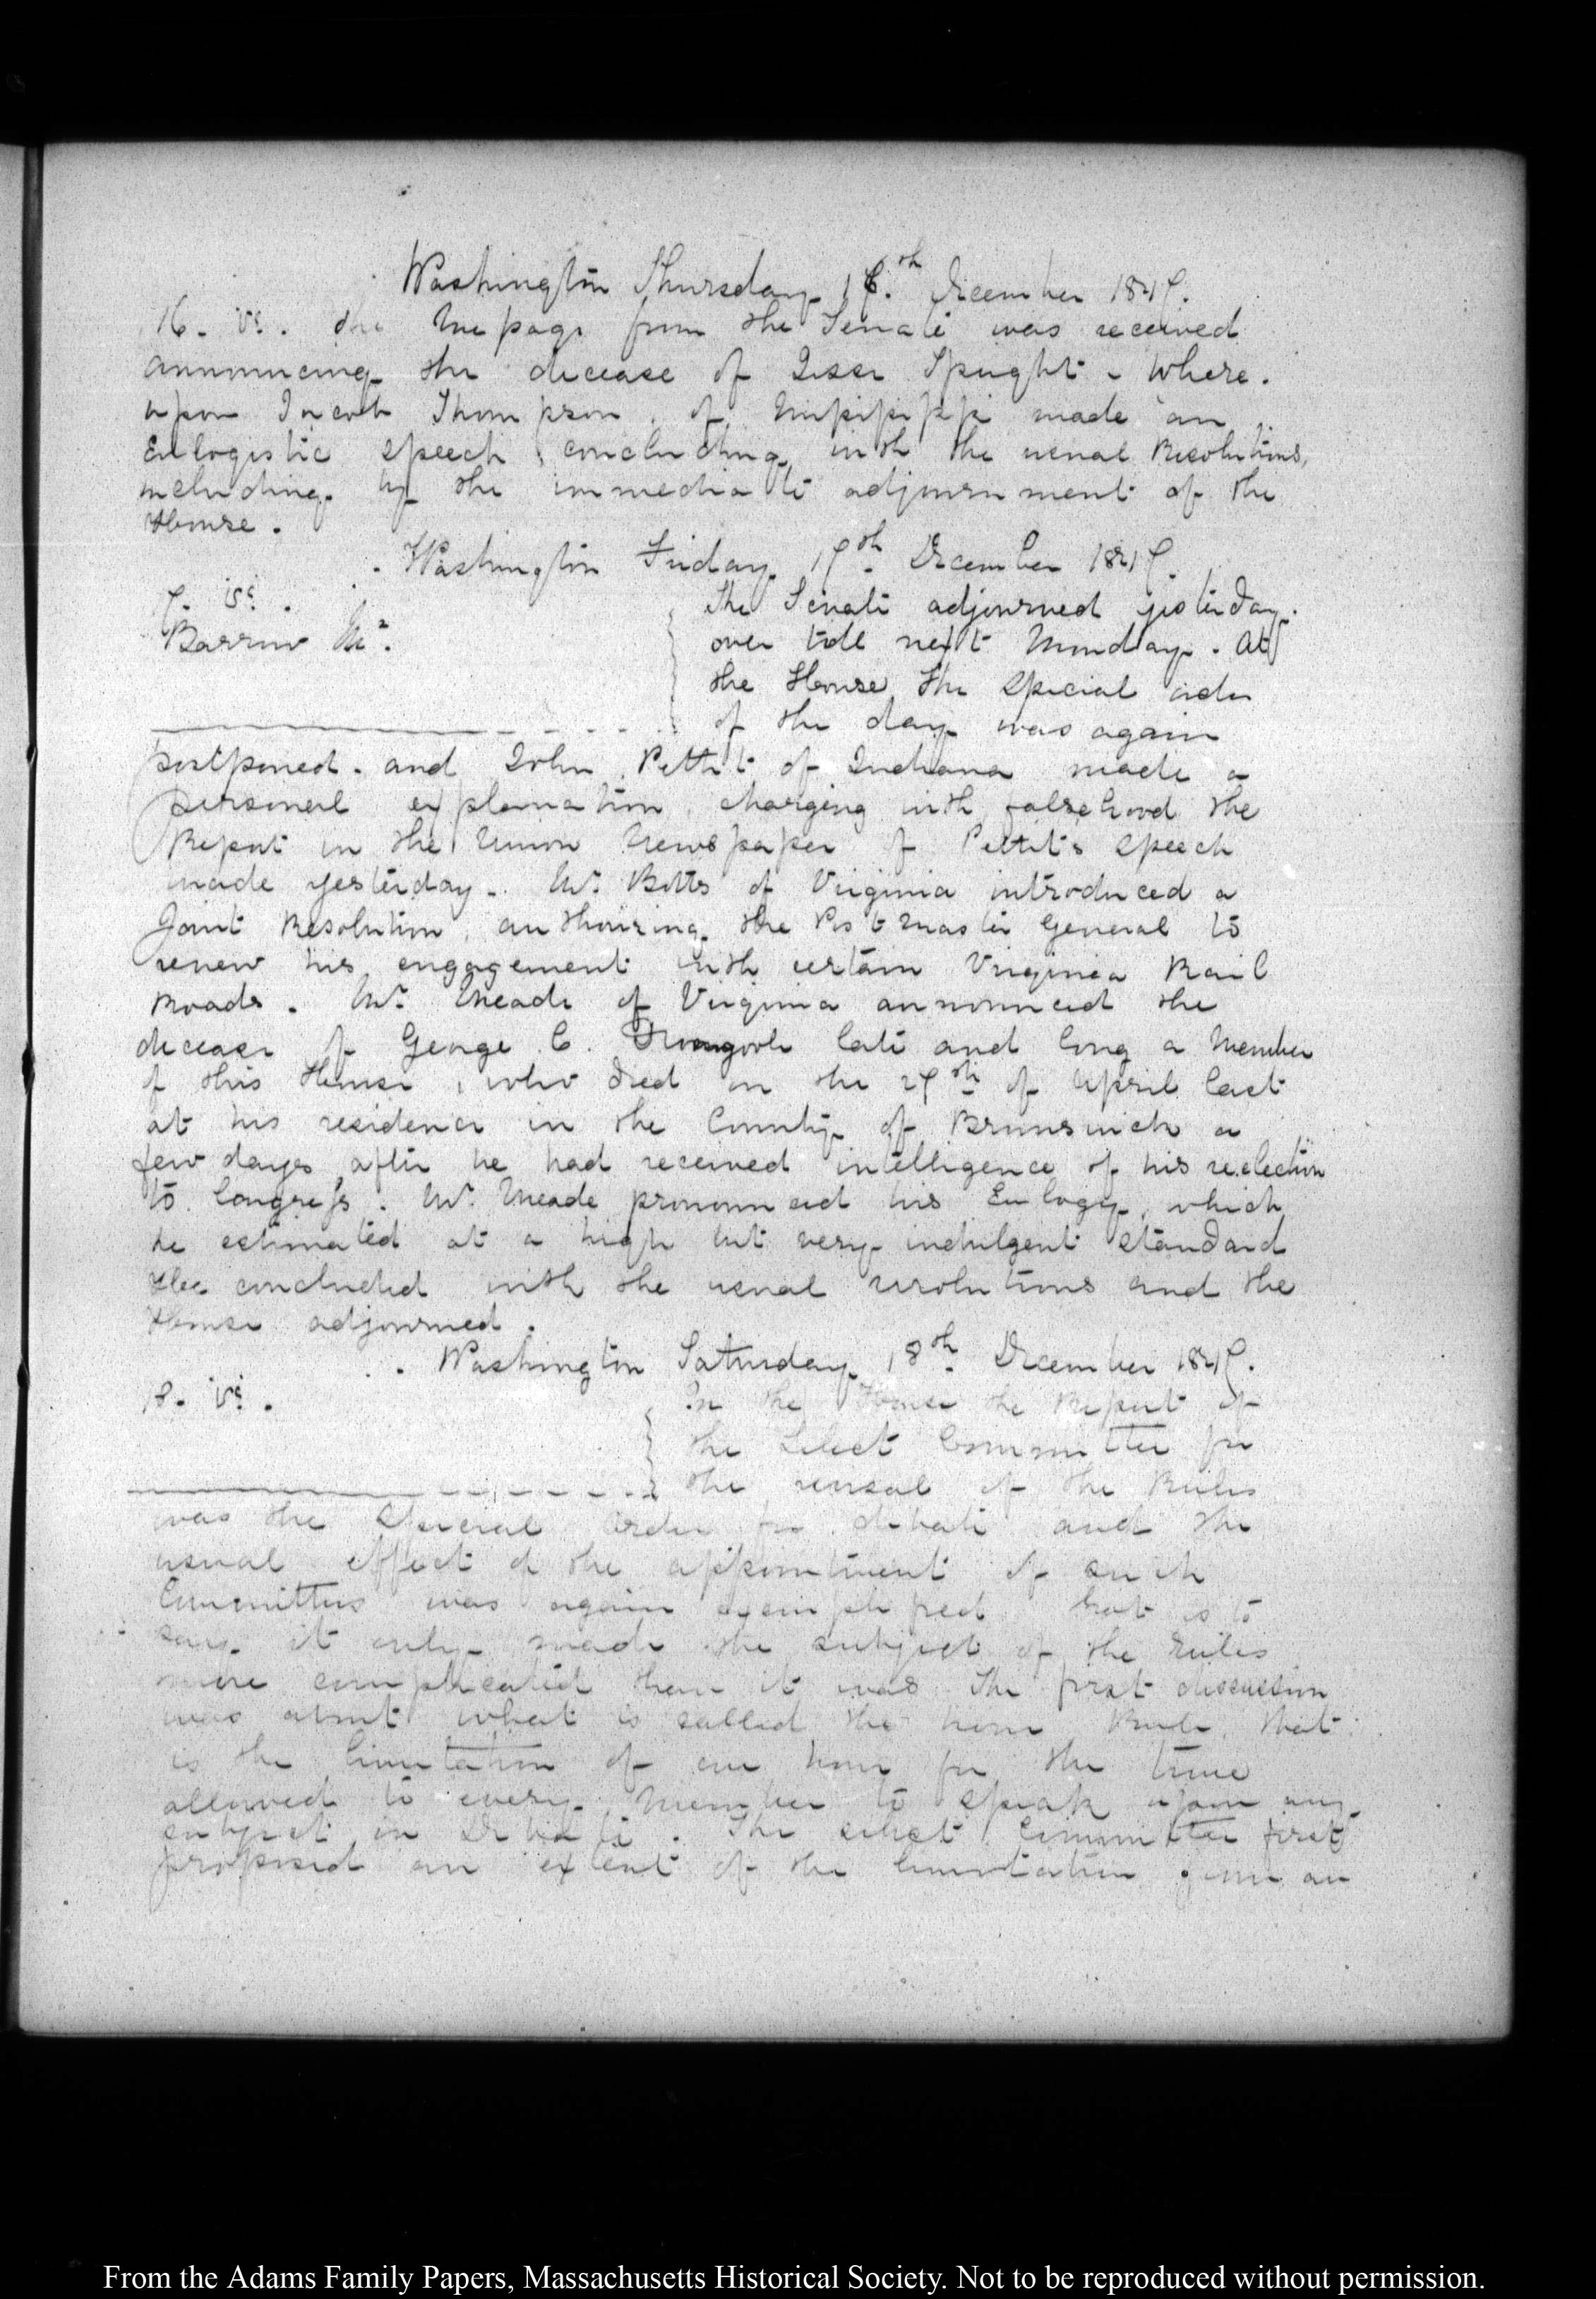 Washington Thursday 16.th December 1847.
16. V. The Message from the Senate was received
announcing the decease of Jesse Speight. Where.
upon Jacob Thompson, of Mississippi made an
Eulogistic speech, concluding with the usual Resolutions,
including the immediate adjournment of the
House.
Washington Friday 17th December 1847.
The Senate adjourned yesterday
Barrow
over till next Monday. At
the House the special order
of the day was again
postponed. and John Pettit of Indiana made a
personal explanation, charging with falsehood the
Report in the Union Newspaper of Pettit's speech
made yesterday. Mr. Botts of Virginia introduced a
Joint Resolution, authorizing the Post Master General to
renew his engagement with certain Virginia Rail
Roads. Mr. Meade of Virginia announced the
decease of George C. Dromgoole late and long a Member
of this House, who died on the 27th of April last
at his residence in the County of Brunswick a
few days after he had received intelligence of his reelection
to Congress. Mr. Meade pronounced his Eulogy, which
he estimated at a high but very indulgent standard
He concluded with the usual resolutions and the
House adjourned.
Washington Saturday 18th December 1847.
In the House the Report of
the Select Committee for
the revisal of the Rules
was the special order for debate and the
usual effect of the appointment of such
Committees was again exemplified that is to
say it only made the subject of the rules
more complicated than it was The first discussion
was about what is called the hour Rule, that
is the limitation of one hour for the time
allowed to every Member to speak upon any
subject in Debate. The select Committee first
proposed an extent of the limitation from an
From the Adams Family Papers, Massachusetts Historical Society. Not to be reproduced without permission.